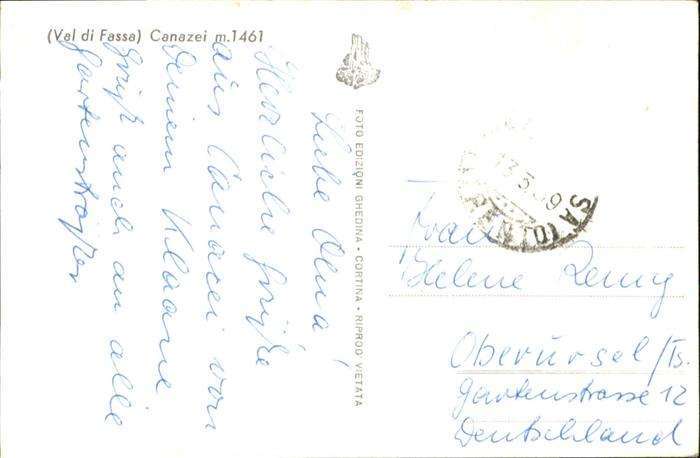 (Val di Fassa) Canazei m.1461
Liebe Oma!
Herzliche Grüße
aus Canazei von
Deinem Klaare
Grüß auch an alle
Gartensträßler
FOTO EDIZIONI GHEDINA - CORTINA - RIPROD VIETATA
13.5.
Frau
Helene Remy
Oberursel/Ts.
Gartenstrasse 12
Deutschland